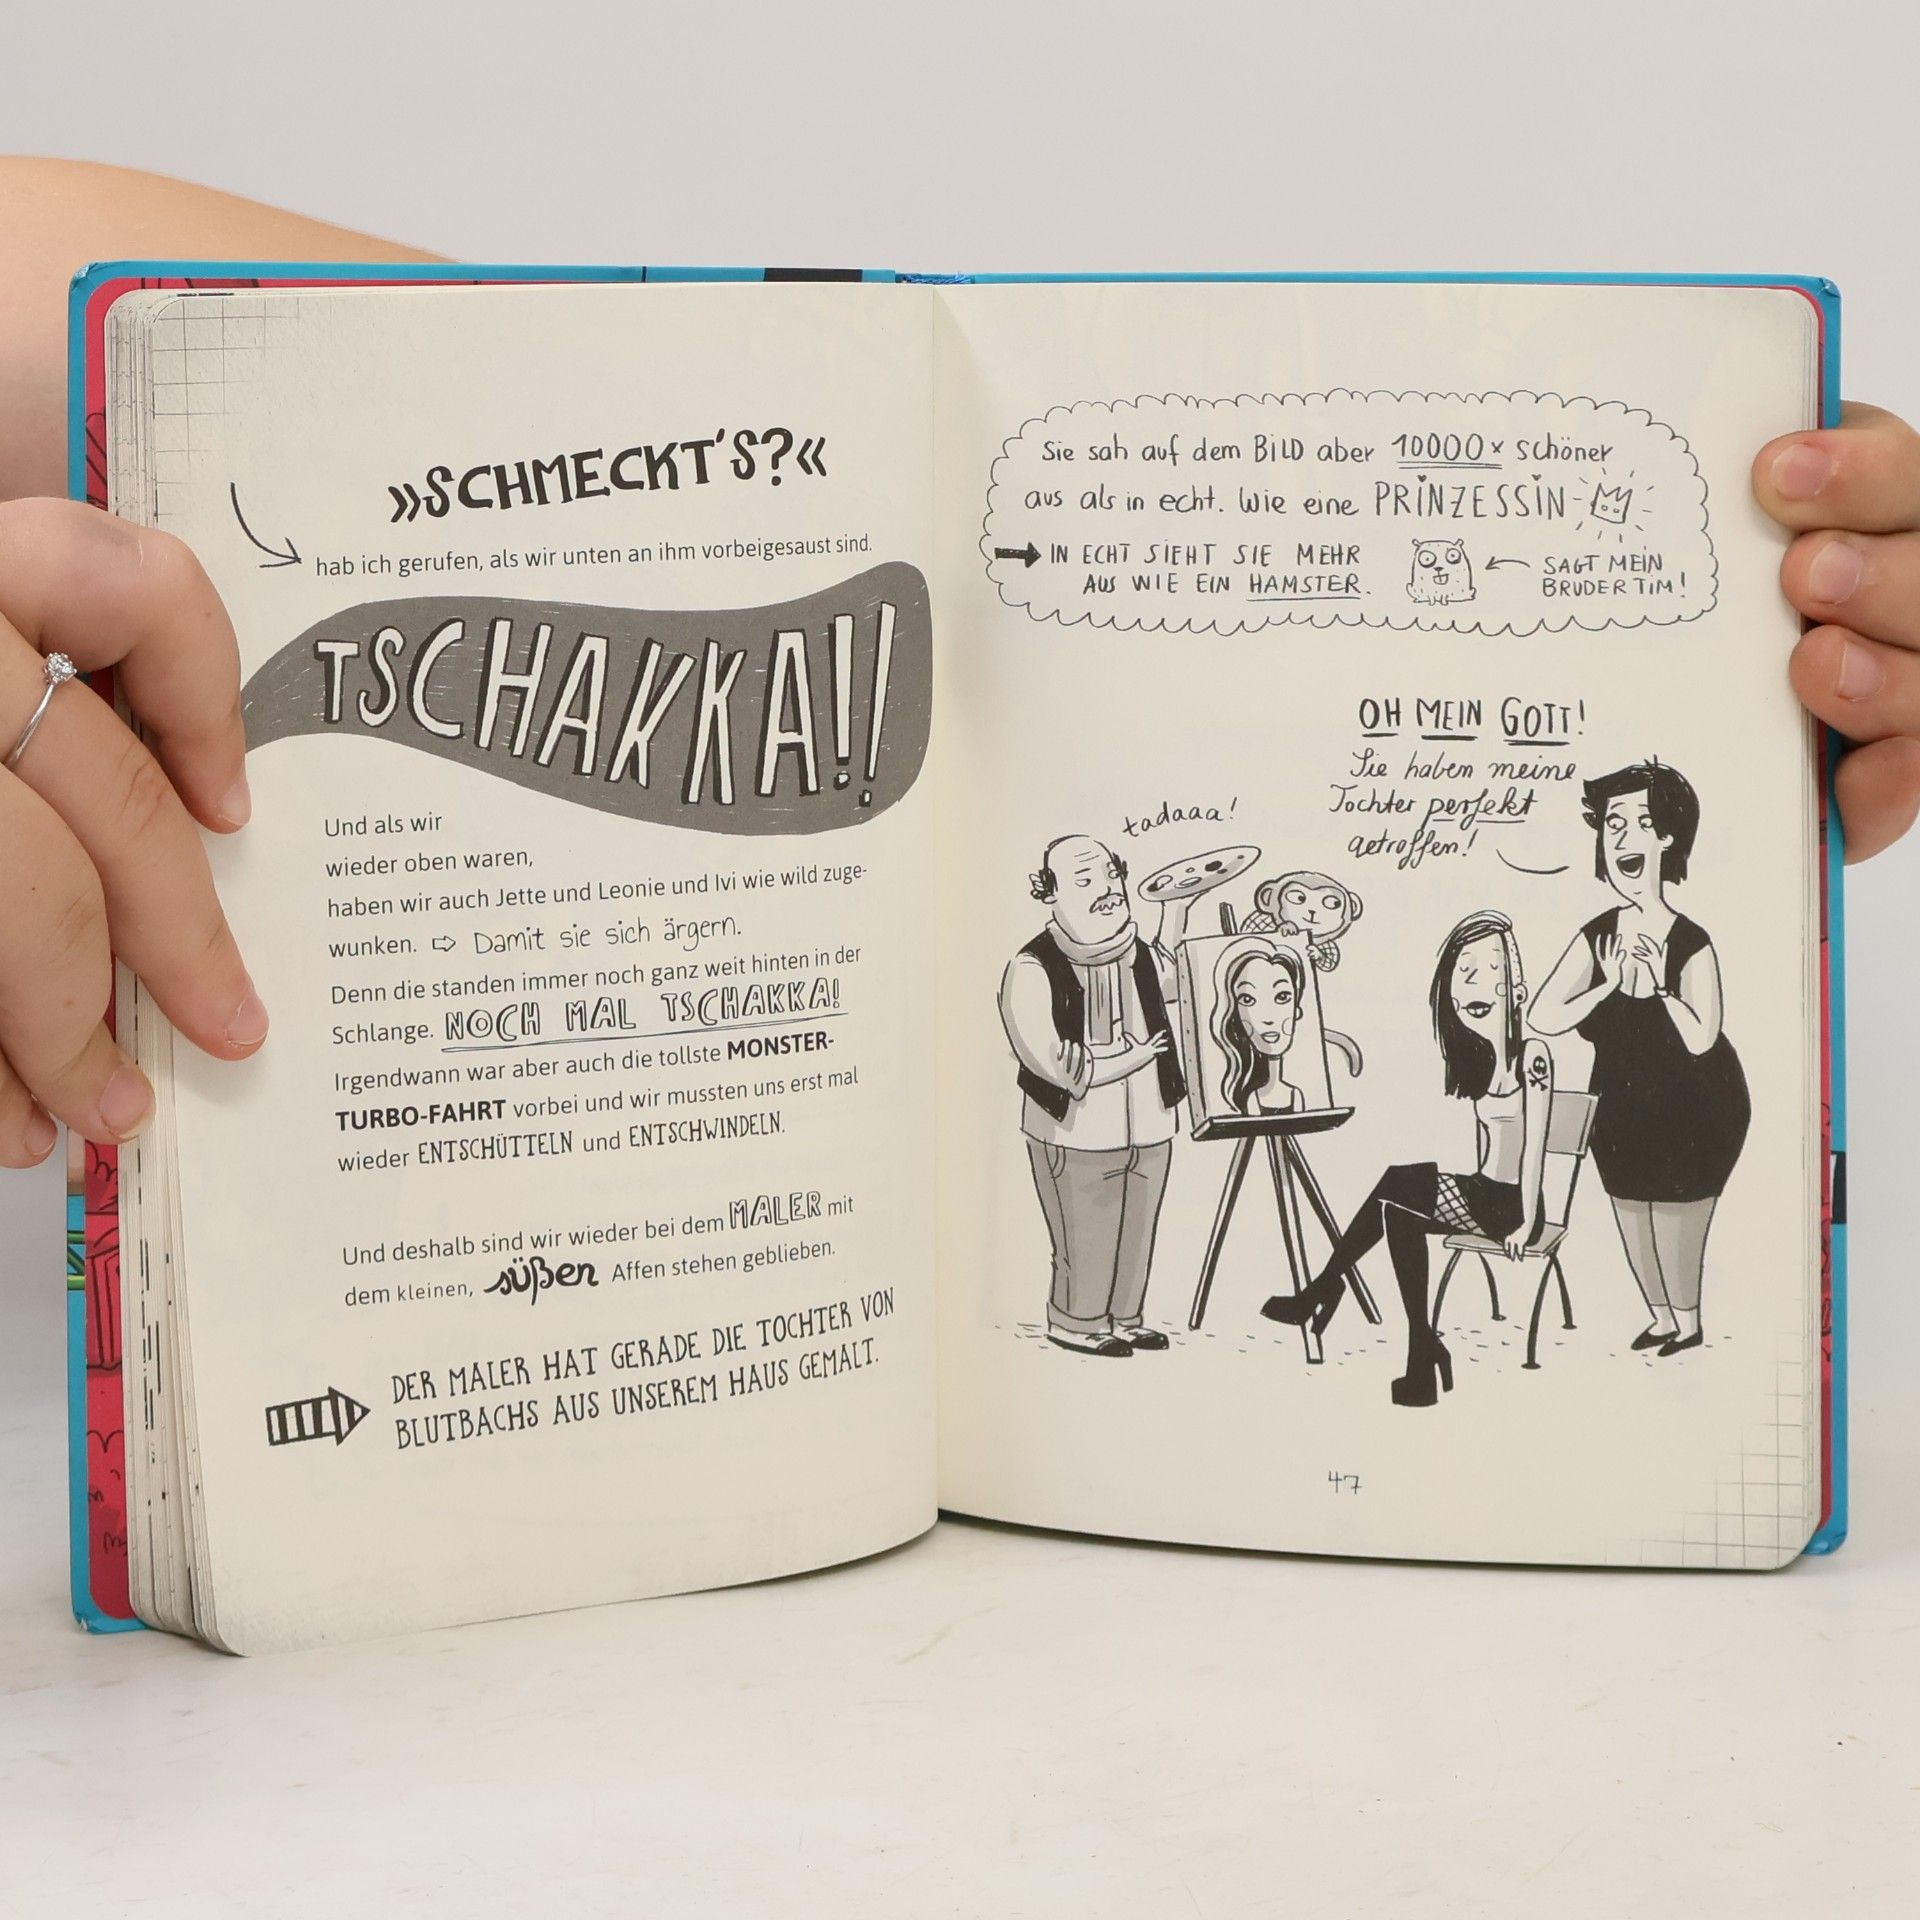 »SCHMECKT'S?«
hab ich gerufen, als wir unten an ihm vorbeigesaust sind.
TSCHAKKA!!
Und als wir
wieder oben waren,
haben wir auch Jette und Leonie und Ivi wie wild zuge-
wunken. ⇨ Damit sie sich ärgern.
Denn die standen immer noch ganz weit hinten in der
Schlange. NOCH MAL TSCHAKKA!
Irgendwann war aber auch die tollste MONSTER-
TURBO-FAHRT vorbei und wir mussten uns erst mal
wieder ENTSCHÜTTELN und ENTSCHWINDELN.
Und deshalb sind wir wieder bei dem MALER mit
dem kleinen, süßen Affen stehen geblieben.
DER MALER HAT GERADE DIE TOCHTER VON
BLUTBACHS AUS UNSEREM HAUS GEMALT.
Sie sah auf dem BILD aber 10000x schöner
aus als in echt. Wie eine PRINZESSIN
IN ECHT SIEHT SIE MEHR
AUS WIE EIN HAMSTER.
SAGT MEIN
BRUDER TIM!
OH MEIN GOTT!
Sie haben meine
Tochter perfekt
getroffen!
tadaaa!
47